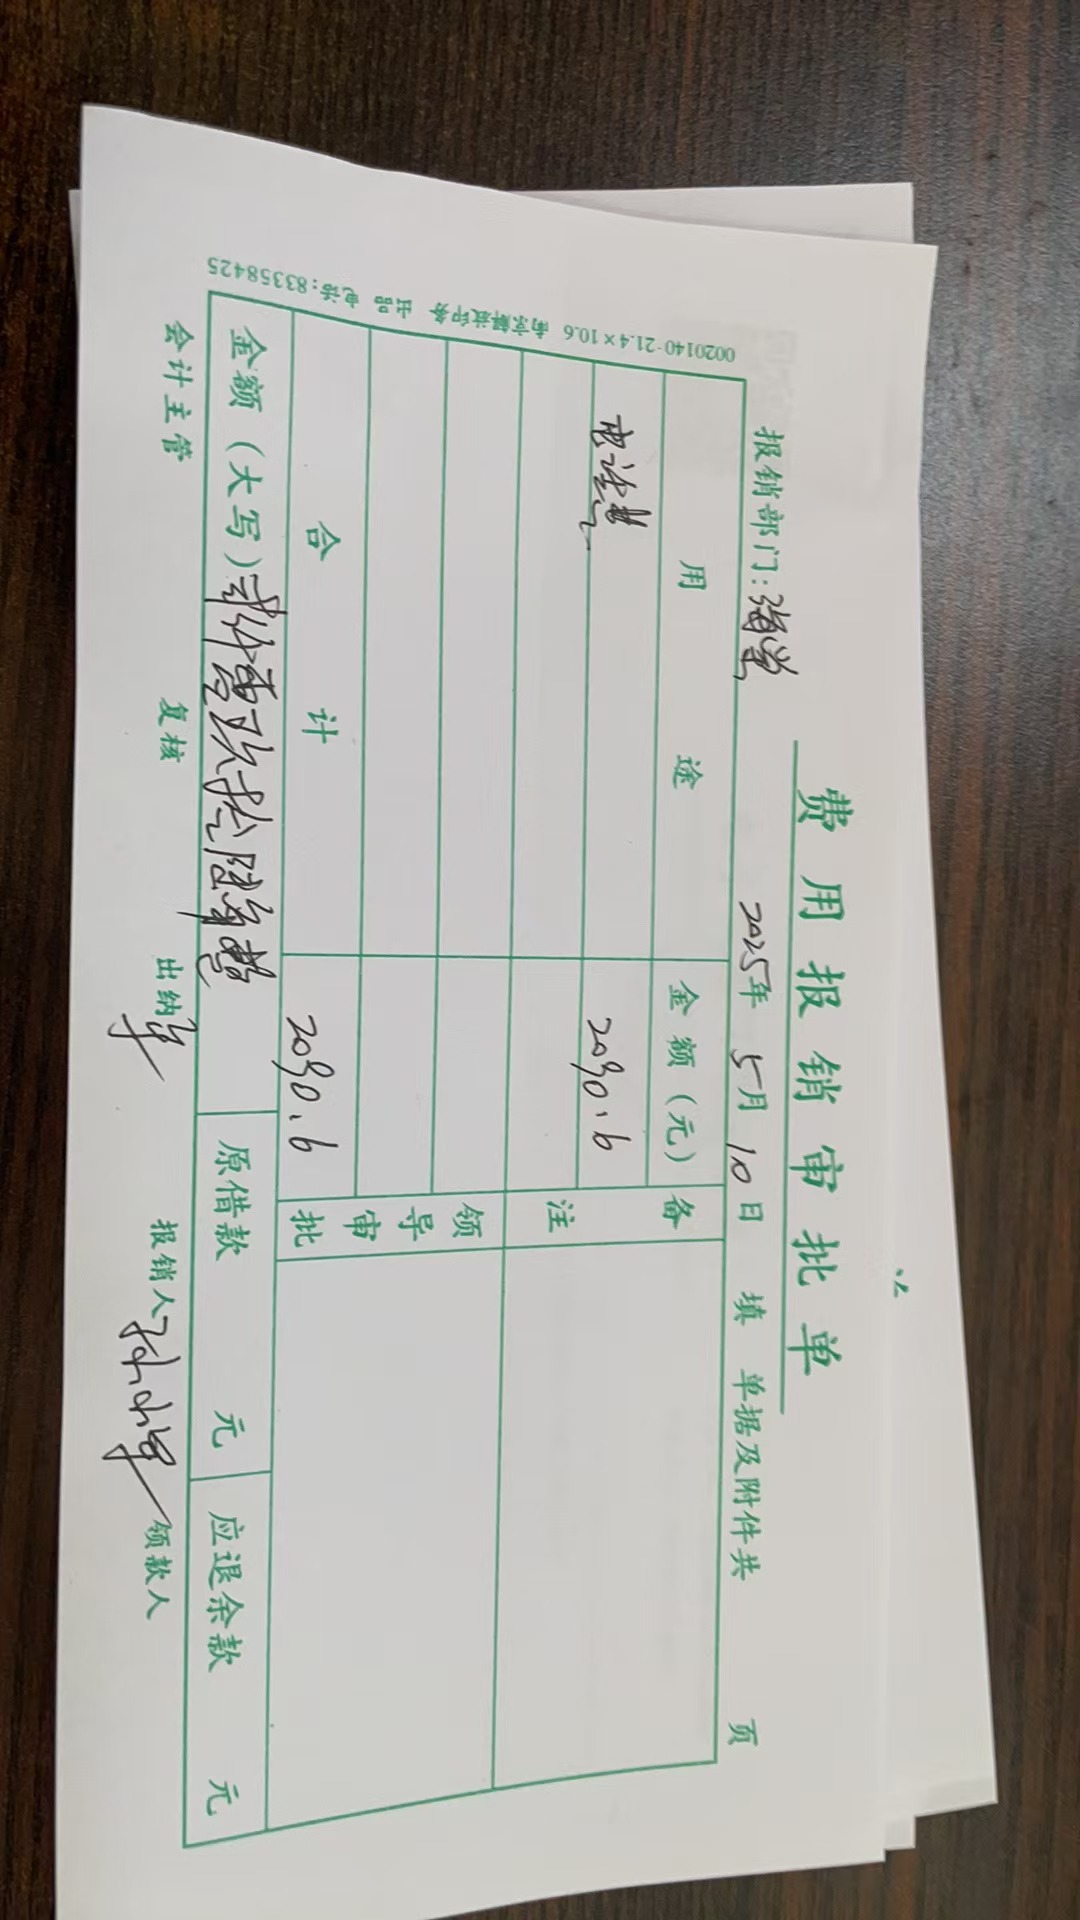 费用报销审批单
报销部门：海堂 2025年 5月 10日 填 单据及附件共 页
用 途 金额（元） 备
电话费 2090.6 注
领导审批
合 计 2090.6
金额（大写）贰仟零玖拾陆角整 原借款 元 应退余款 元
会计主管 复核 出纳 报销人 领款人
0020140-21.4×10.6 南京解放印务 出品 电话：83358425